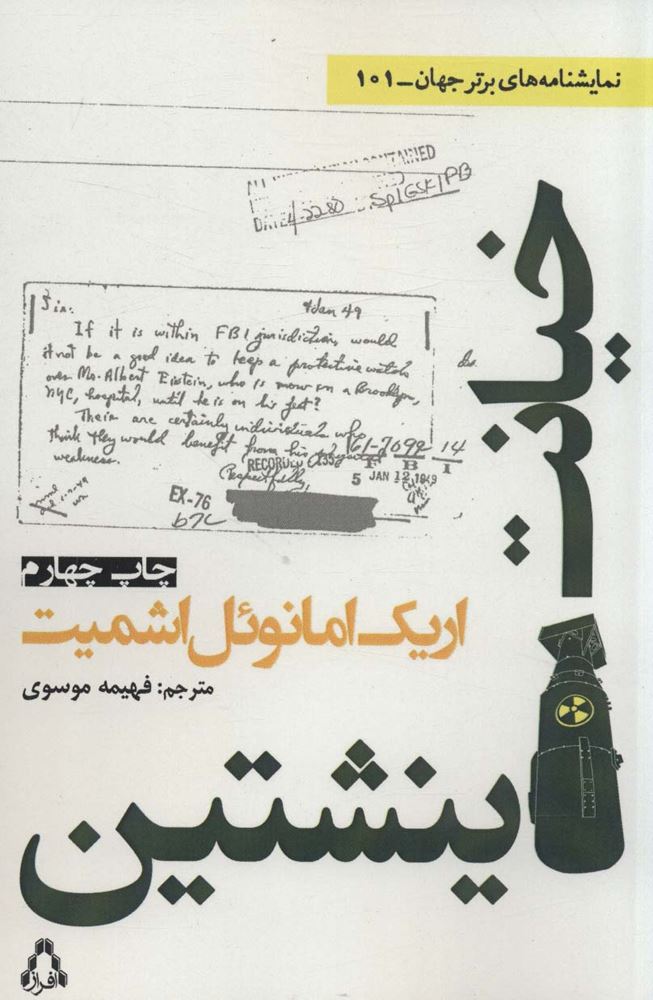 نمایشنامه‌های برتر جهان_۱۰۱
خیانت
CONTAINED
DATE 4-22-80 Sp1GSK/PB
Sir: 9 Jan 49
If it is within FBI jurisdiction, would
it not be a good idea to keep a protective watch
over Mr. Albert Eistein, who is now in a Brooklyn,
NYC, hospital, until he is on his feet?
There are certainly individuals who
think they would benefit from his physical
weakness.
Respectfully,
RECORDED
61-7099 14
F B I
5 JAN 12 1949
EX-76
b7C
چاپ چهارم
اریک امانوئل اشمیت
مترجم: فهیمه موسوی
اینشتین
افراز